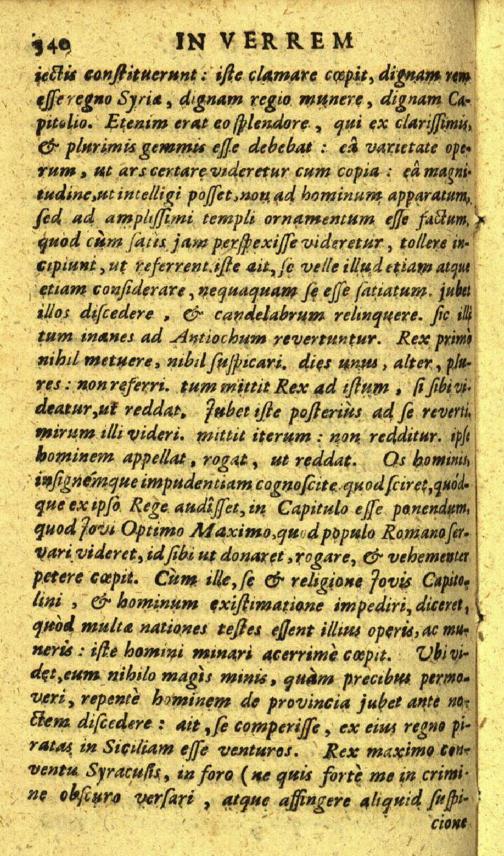 340 IN VERREM
iectis constituerunt: iste clamare cœpit, dignam rem
esse regno Syriæ, dignam regio munere, dignam Ca-
pitolio. Etenim erat eo splendore, qui ex clarissimis,
& plurimis gemmis esse debebat: eâ varietate ope-
rum, ut ars certare videretur cum copia: eâ magni-
tudine, ut intelligi posset, non ad hominum apparatum,
sed ad amplissimi templi ornamentum esse factum,
quod cùm satis jam perspexisse videretur, tollere in-
cipiunt, ut referrent. iste ait, se velle illud etiam atque
etiam considerare, nequaquam se esse satiatum. jubet
illos discedere, & candelabrum relinquere. sic illi
tum inanes ad Antiochum revertuntur. Rex primò
nihil metuere, nihil suspicari. dies unus, alter, plu-
res: non referri. tum mittit Rex ad istum, si sibi vi-
deatur, ut reddat. Jubet iste posteriùs ad se reverti.
mirum illi videri. mittit iterum: non redditur. ipse
hominem appellat, rogat, ut reddat. Os hominis,
insignémque impudentiam cognoscite. quod sciret, quód-
que ex ipso Rege audîsset, in Capitulo esse ponendum,
quod Jovi Optimo Maximo, quod populo Romano ser-
vari videret, id sibi ut donaret, rogare, & vehementer
petere cœpit. Cùm ille, se & religione Jovis Capito-
lini, & hominum existimatione impediri, diceret,
quòd multæ nationes testes essent illius operis, ac mu-
neris: iste homini minari acerrimè cœpit. Ubi vi-
det, eum nihilo magìs minis, quàm precibus permo-
veri, repentè hominem de provincia jubet ante no-
ctem discedere: ait, se comperisse, ex eius regno pi-
ratas in Siciliam esse venturos. Rex maximo con-
ventu Syracusis, in foro (ne quis fortè me in crimi-
ne obscuro versari, atque affingere aliquid suspi-
cione